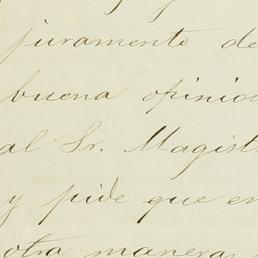 juramento de
buena opinio
al Sr. Magist
y pide que en
otra manera